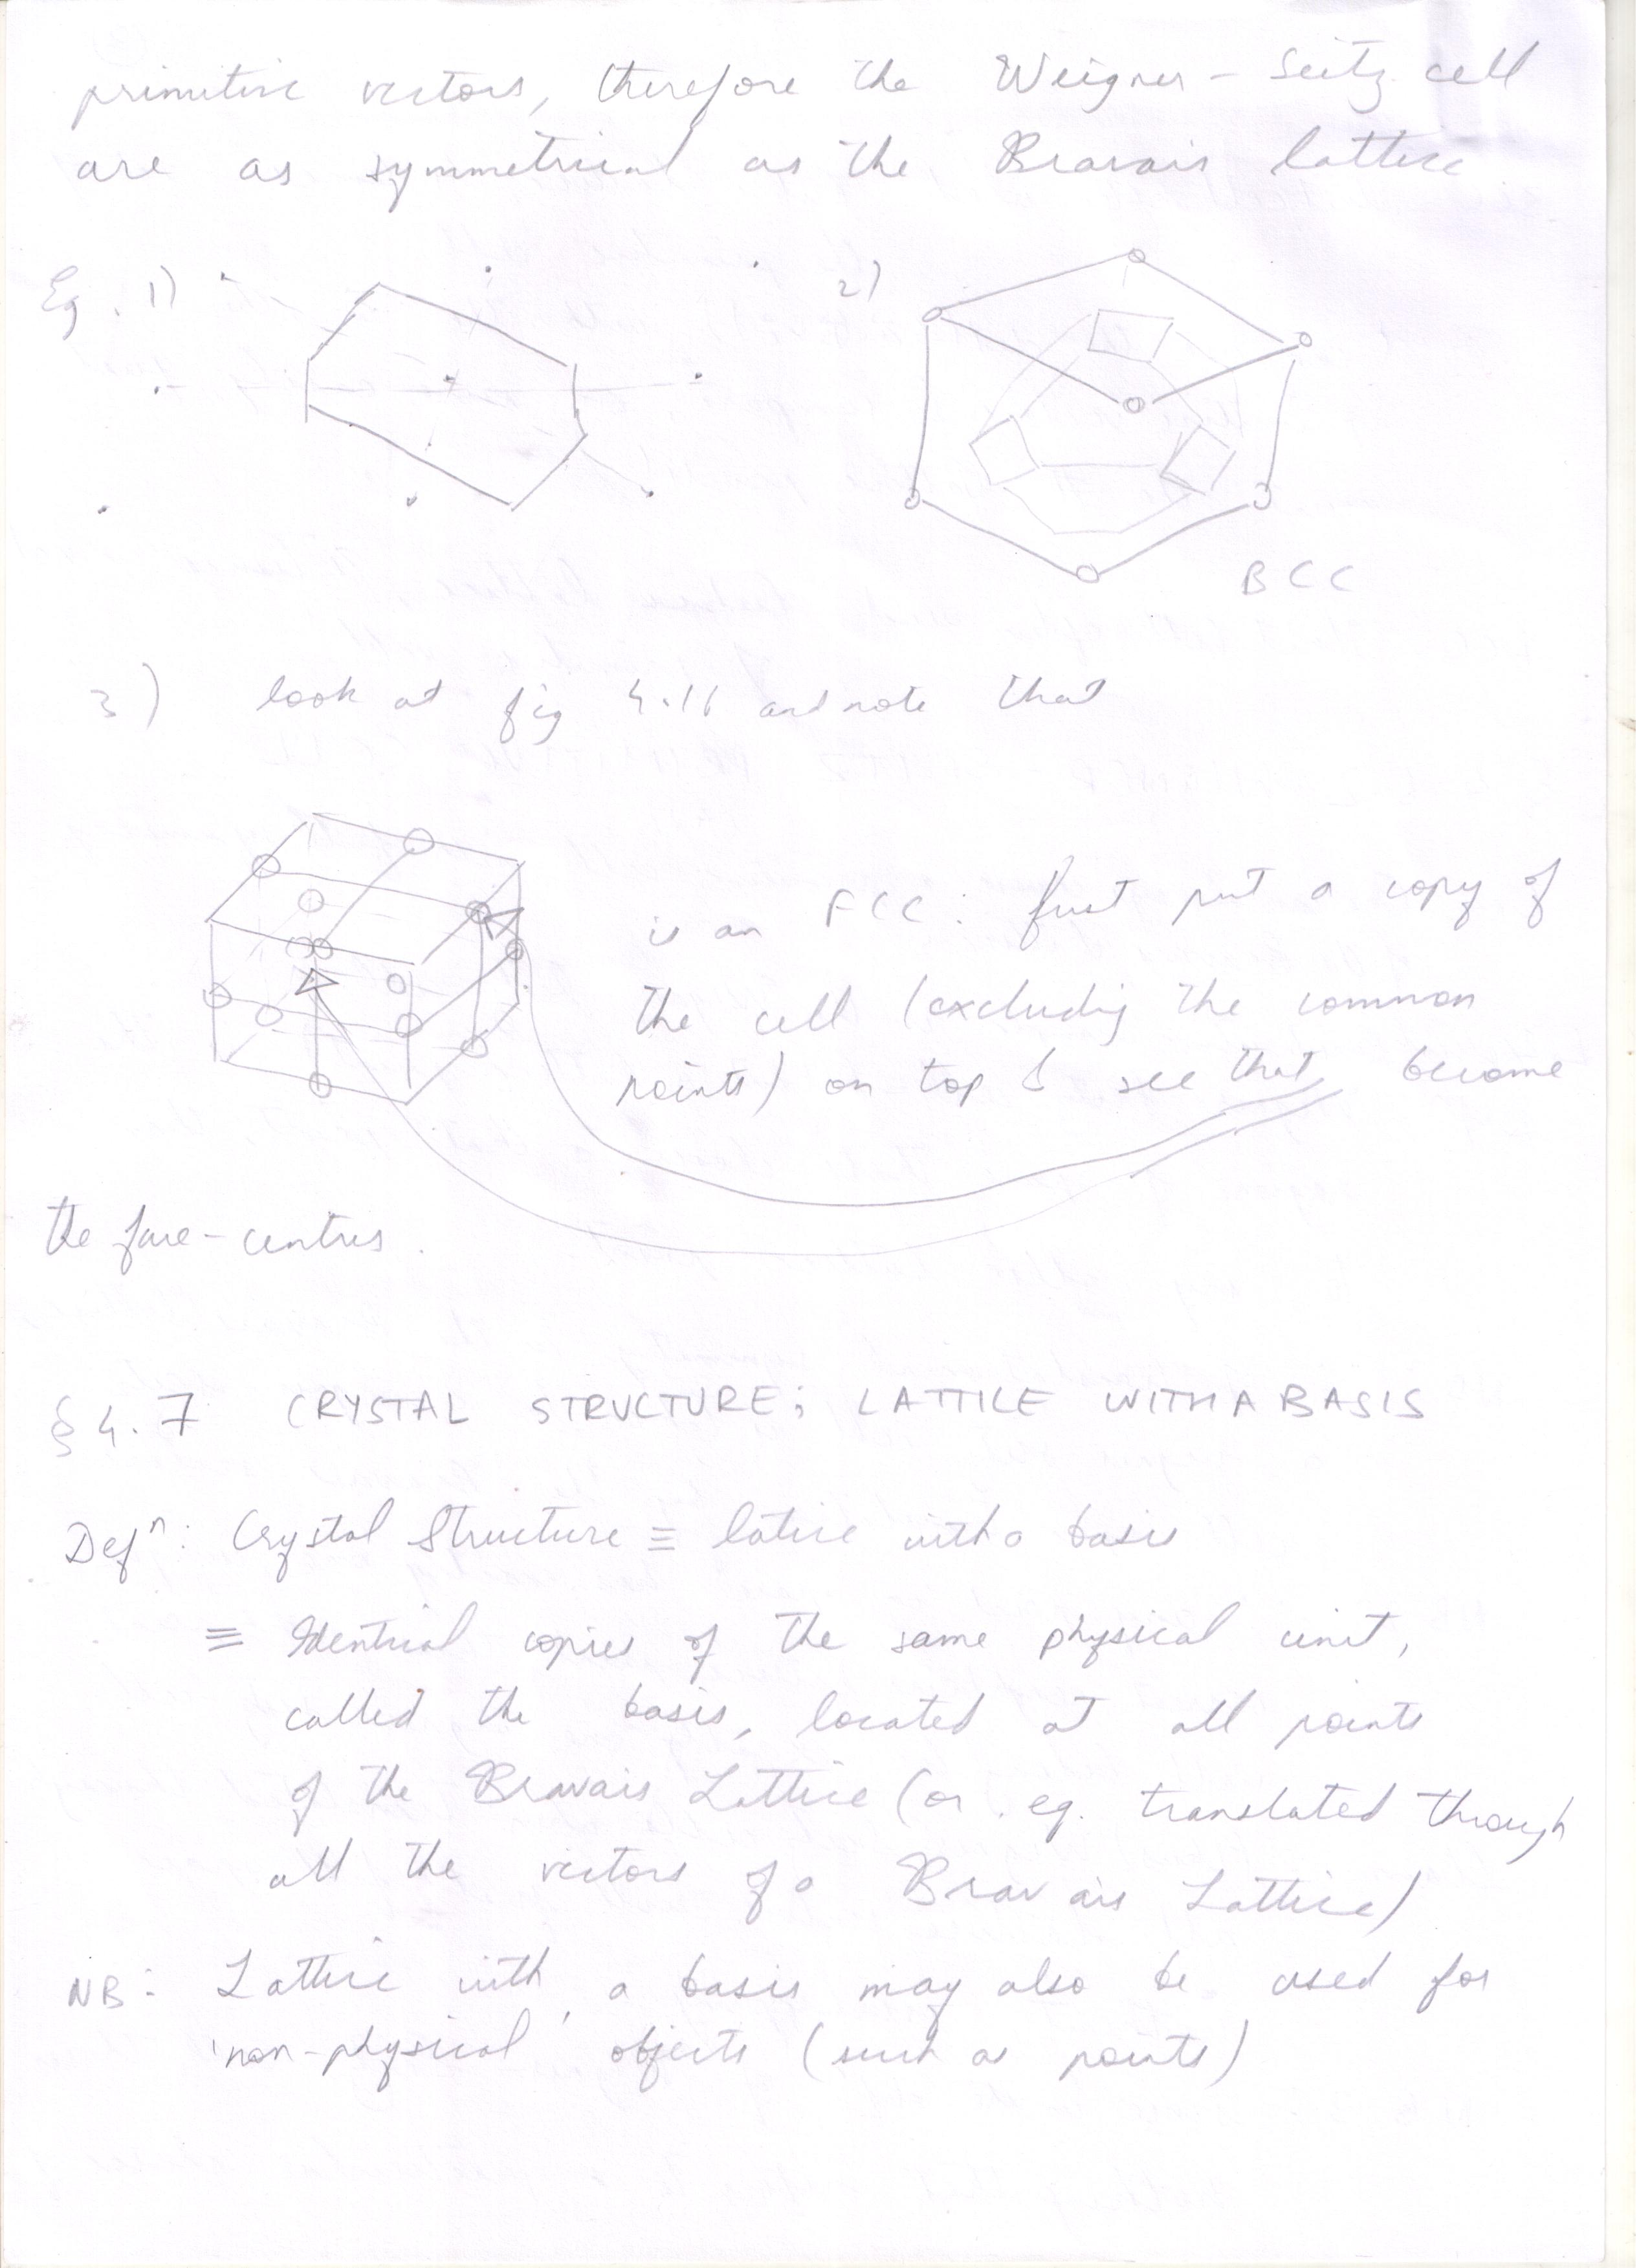 primitive vectors, therefore the Weigner - Seitz cell
are as symmetrical as the Bravais lattice
Eg. 1)
2)
BCC
3) look at fig 4.16 and note that
is an FCC: just put a copy of
the cell (excluding the common
points) on top & see that become
the face-centres.
§ 4.7 CRYSTAL STRUCTURE; LATTICE WITH A BASIS
Defⁿ: Crystal Structure ≡ latice with a basis
≡ Identical copies of the same physical unit,
called the basis, located at all points
of the Bravais Lattice (or. eg. translated through
all the vectors of a Bravais Lattice)
NB: Lattice with a basis may also be used for
'non-physical' objects (such as points)